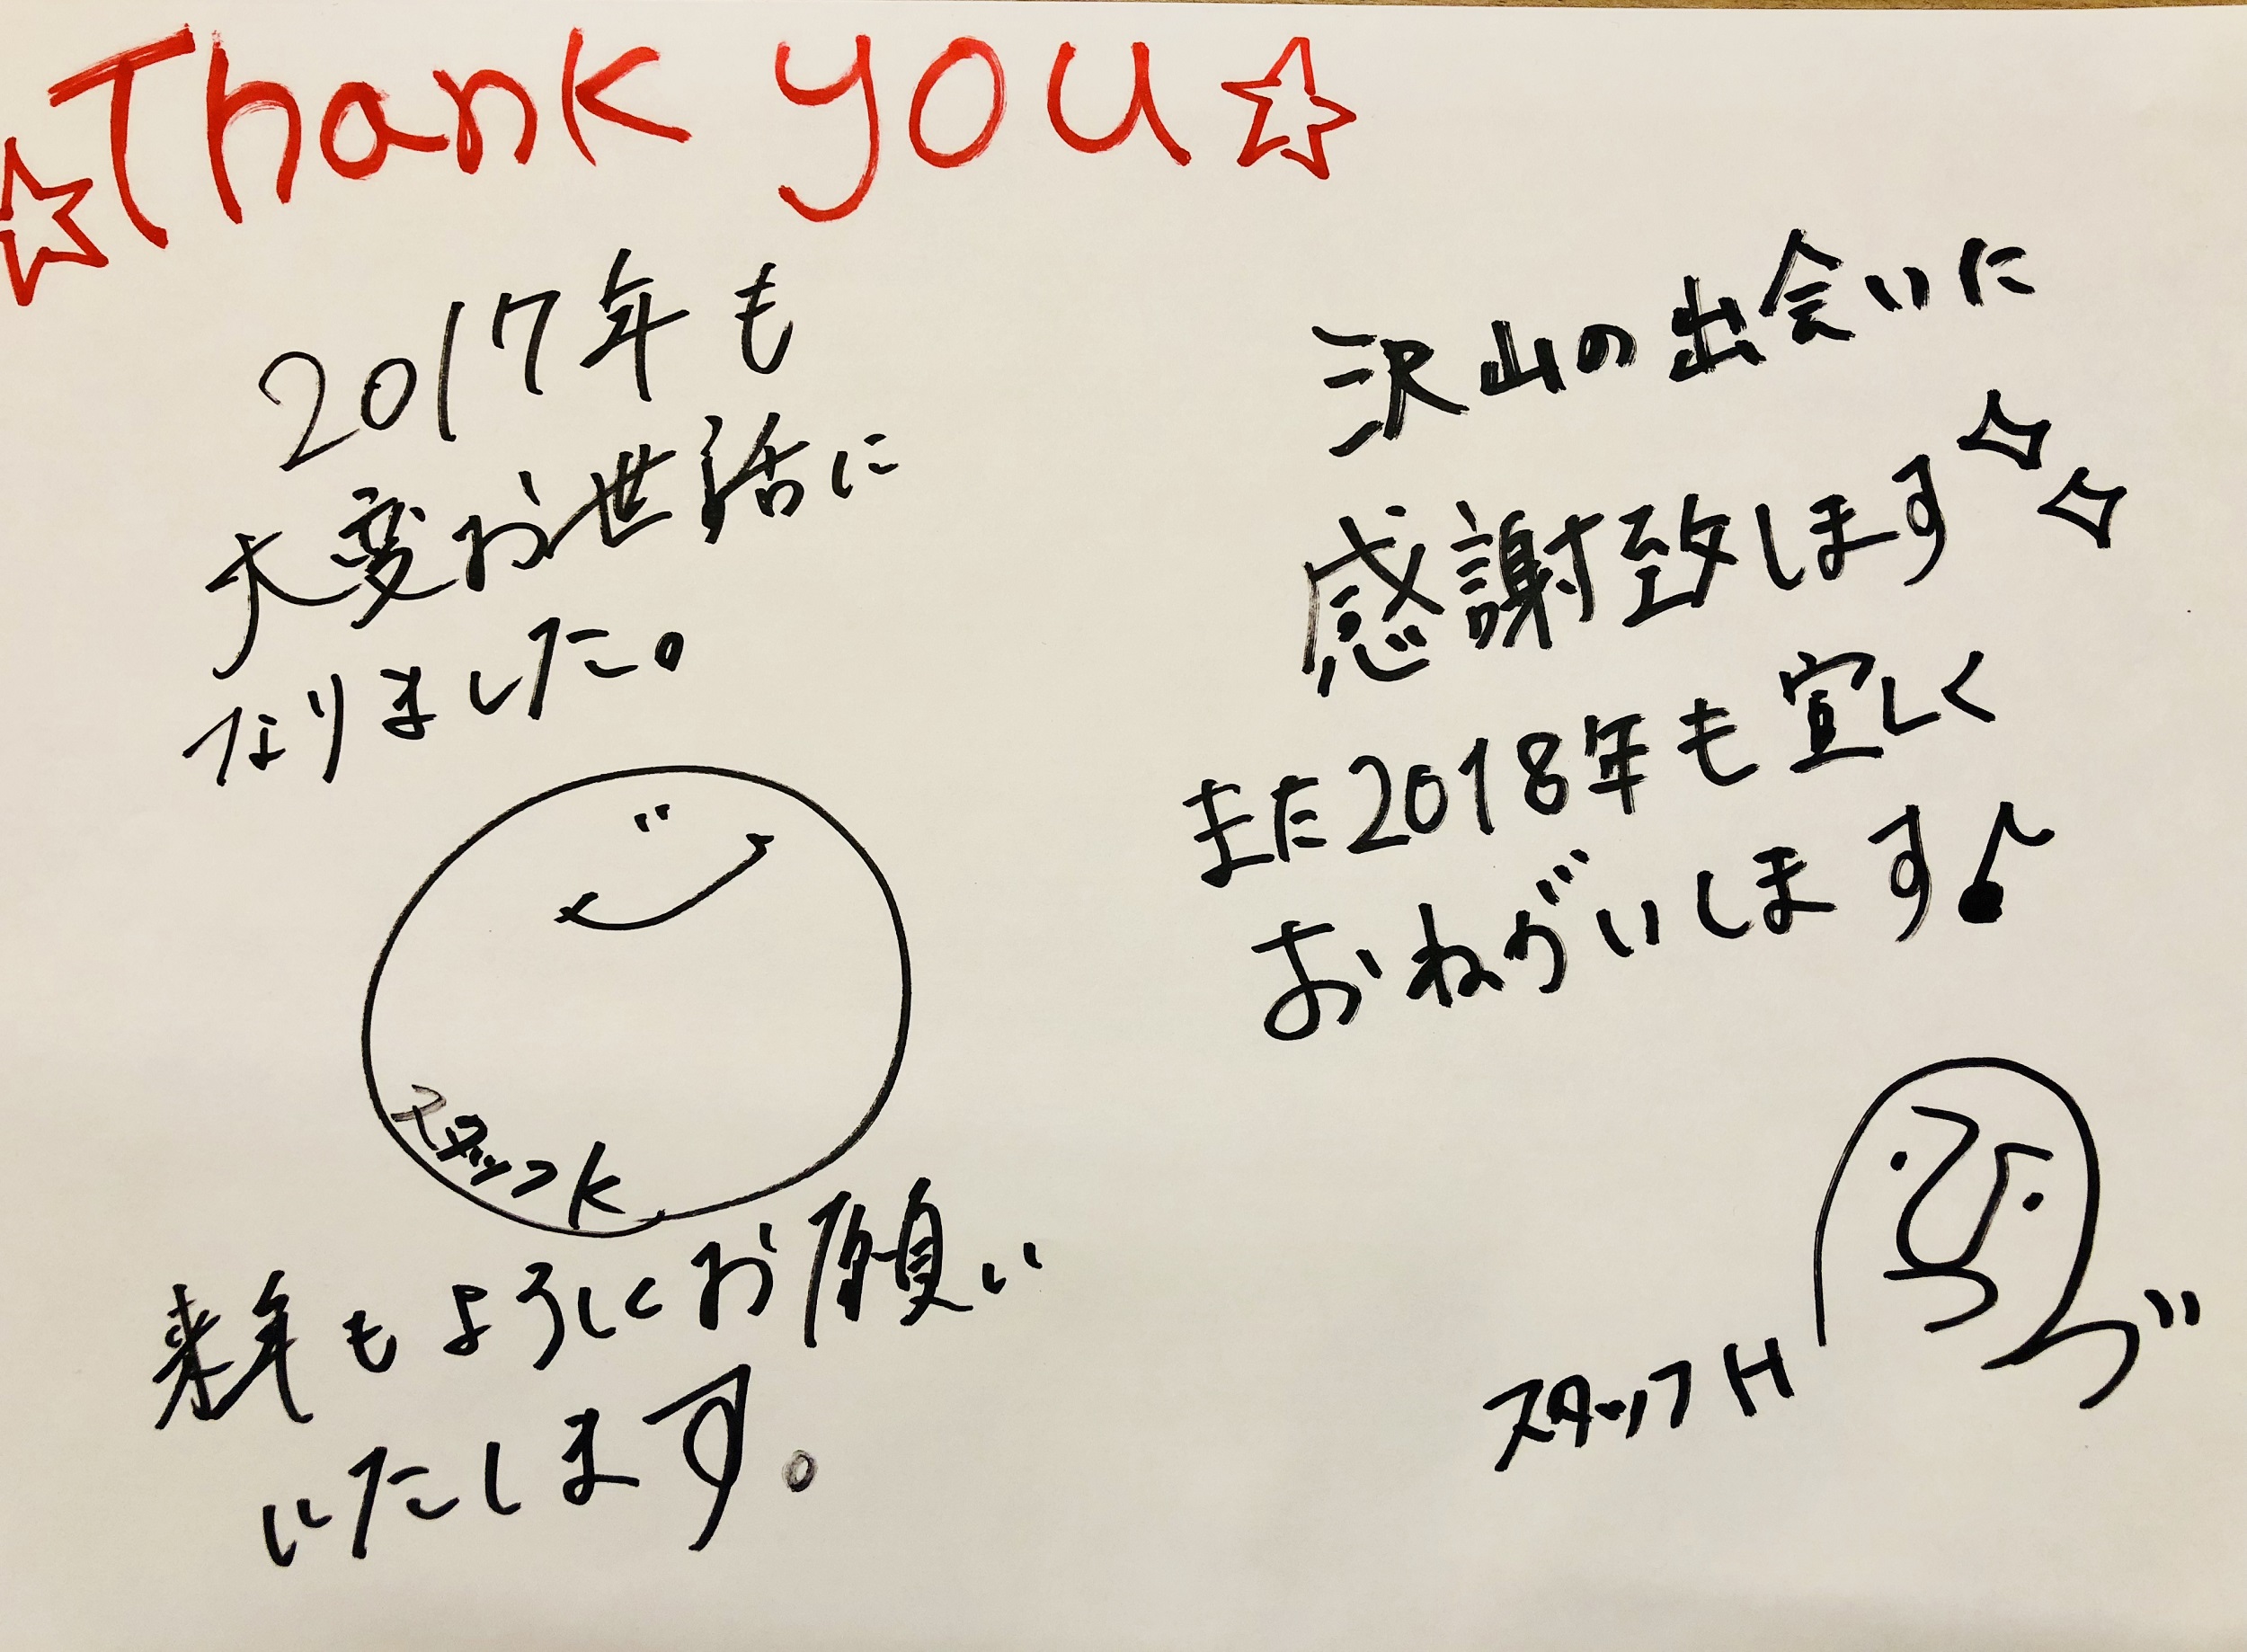 ☆Thank you☆
2017年も
大変お世話に
なりました。
スタッフK
来年もよろしくお願い
いたします。
沢山の出会いに
感謝致します
また2018年も宜しく
おねがいします♪
スタッフH